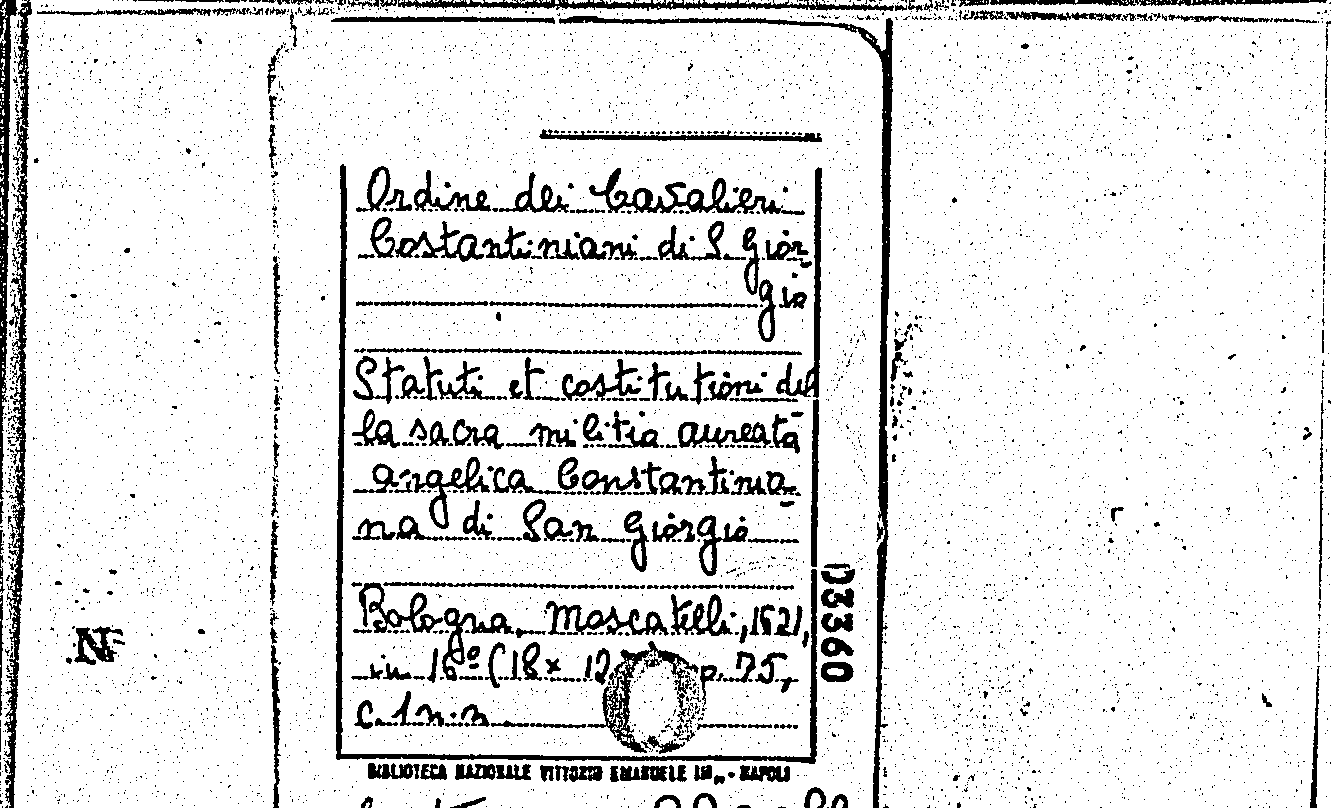 Ordine dei Cavalieri
Costantiniani di S. Gior-
gio
Statuti et costitutioni del
la sacra militia aureata
angelica Constantinia-
na di San Giorgio
Bologna, Moscatelli, 1621,
in 16º (18 x 12 p. 75,
c. 1 n.n.
D3360
BIBLIOTECA NAZIONALE VITTORIO EMANUELE III,, - NAPOLI
N